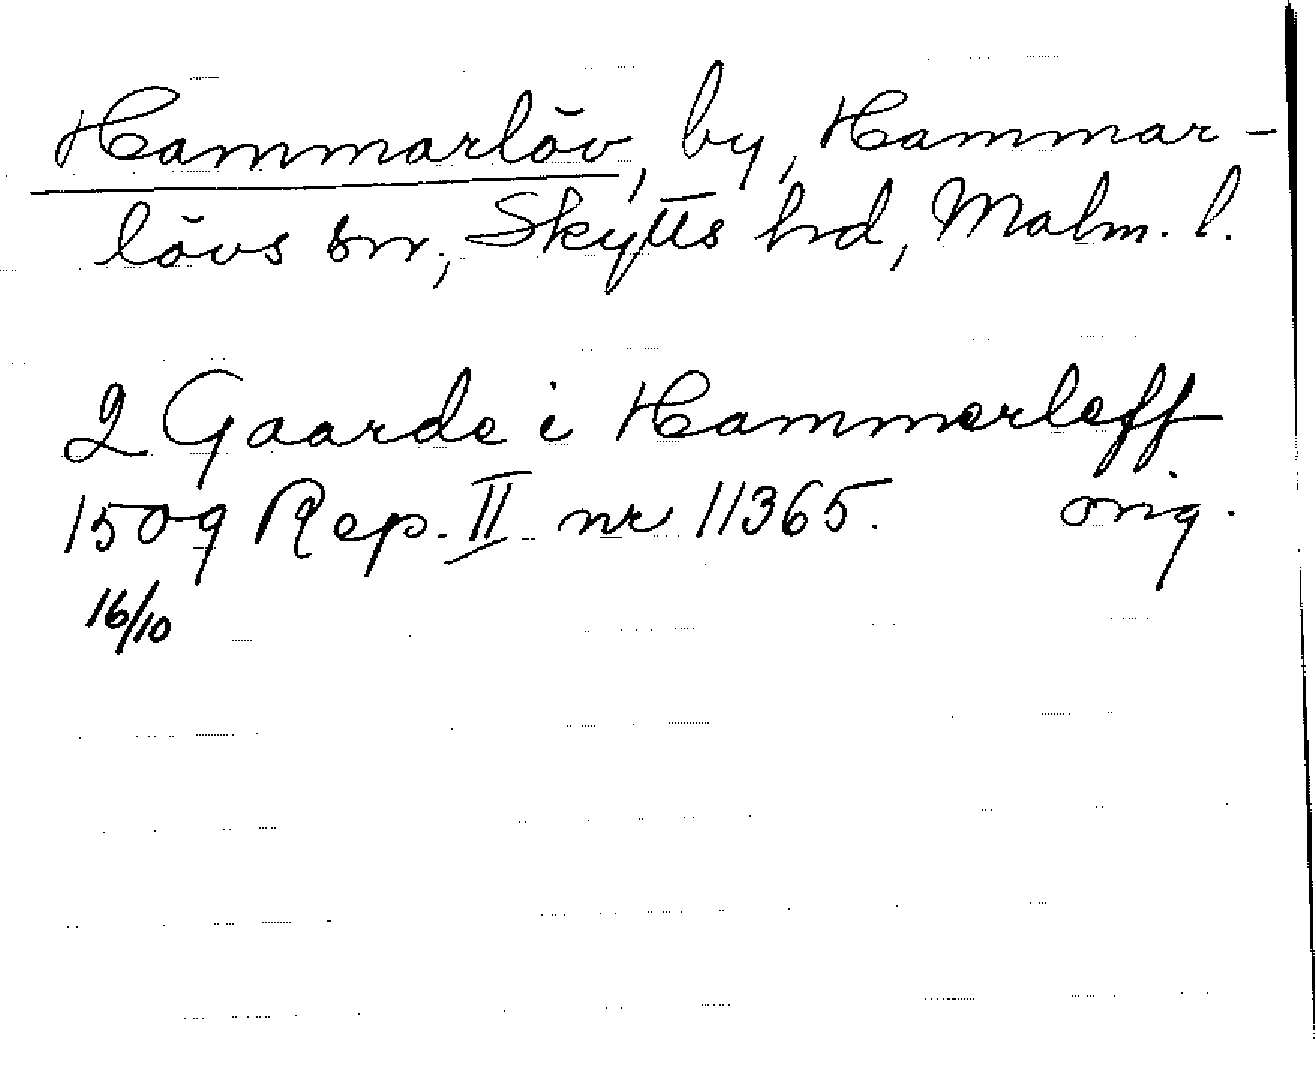 Hammarlöv, by, Hammar-
lövs sn, Skytts hd, Malm. l.
2 Gaarde i Hammerleff
1509 Rep. II nr 11365. orig.
16/10